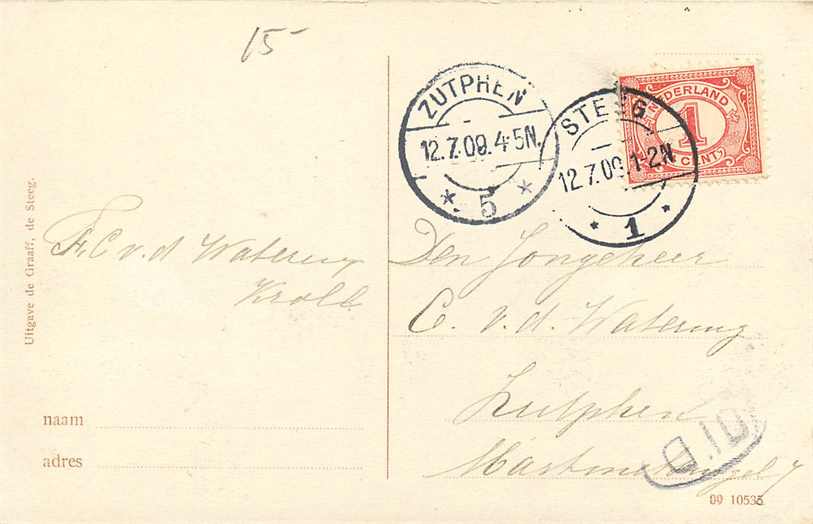 15-
ZUTPHEN
12.7.09.4-5N.
* 5 *
STEEG
12.7.09.1-2N
* 1 *
NEDERLAND
1
CENT
Uitgave de Graaff, de Steeg.
F. C v. d Watering
Kroll
Den Jongeheer
C. v. d. Watering
Zutphen
7
naam
adres
09 10535